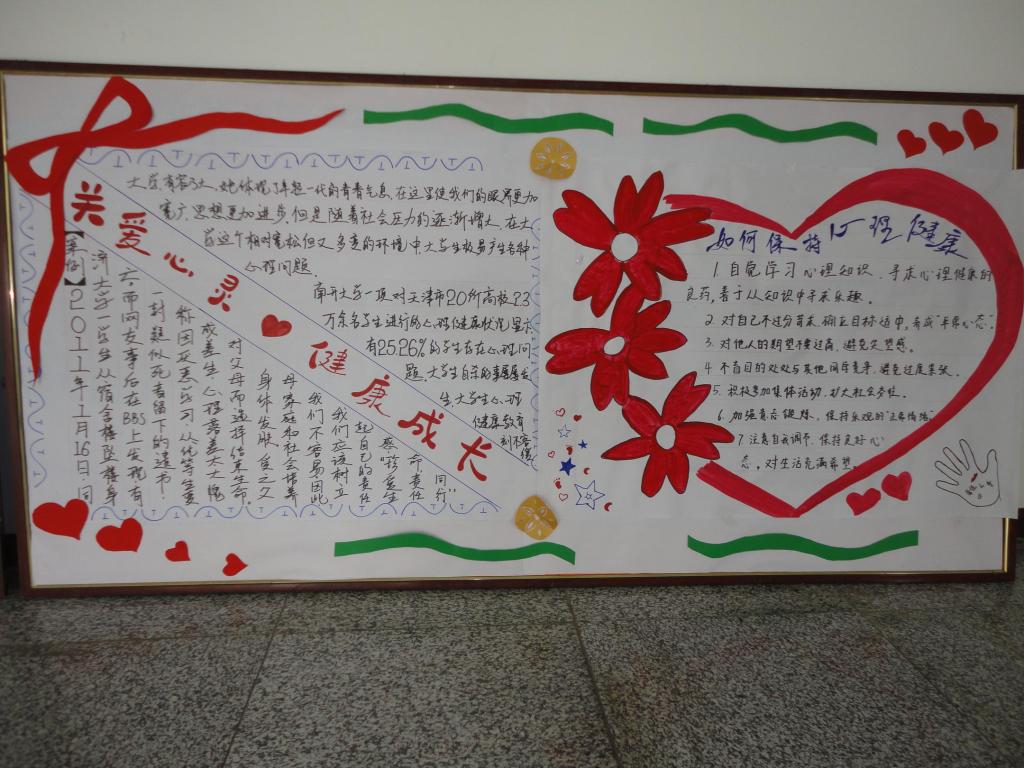 关爱心灵 健康成长
大学，有容乃大，她体现了年轻一代的青春气息，在这里使我们的眼界更加
宽广，思想更加进步，但是随着社会压力的逐渐增大，在大
学这个相对宽松但又多变的环境中，大学生极易产生各种
心理问题．
南开大学一项对天津市20所高校2.3
万余名学生进行的心理健康状况显示，
有25.26%的学生存在心理问
题．大学生自杀的事屡屡发
生，大学生心理
健康教育
刻不容
缓
【案例】2011年1月16日，同
济大学一学生从宿舍楼坠楼身
亡，而网友事后在BBS上发现有
一封疑似死者留下的遗书：
称因厌恶学习，从优等生变
成差生，心理落差太大愧
对父母而选择结束生命．
身体发肤，受之父
母，家庭和社会培养
我们不容易，因此
我们应该树立
起自己的责任
感，“珍爱生
命，责任
同行”
如何保持心理健康
1. 自觉学习心理知识，寻求心理健康的
良药，善于从知识中寻求乐趣。
2. 对自己不过分苛求，确立目标适中，有成“平常心态”．
3. 对他人的期望不要过高，避免失望感。
4. 不盲目的处处与其他同学竞争，避免过度紧张。
5. 积极参加集体活动，扩大社会交往。
6. 加强意志锻炼，保持乐观的“正常情绪”
7. 注意自我调节，保持良好心
态，对生活充满希望．